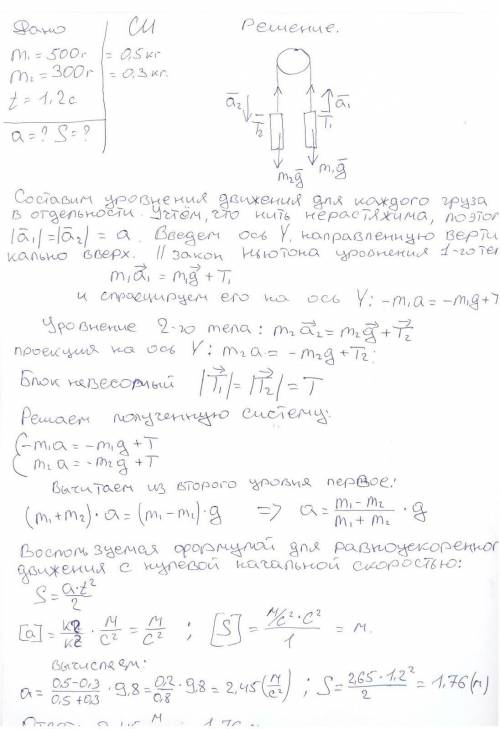 Дано
СИ
Решение.
m₁ = 500г = 0,5 кг
m₂ = 300г = 0,3 кг.
t = 1,2 с
a = ? S = ?
a⃗₂ T⃗₂ T⃗₁ a⃗₁
m₂g⃗ m₁g⃗
Составим уровнения движения для каждого груза
в отдельности. Учтём, что нить нерастяжима, поэтом
|a⃗₁| = |a⃗₂| = a. Введем ось Y, направленную верти
кально вверх. II закон Ньютона уровнения 1-го тел
m₁a⃗₁ = m₁g⃗ + T₁
и спроецируем его на ось Y: -m₁a = -m₁g + T
Уровнение 2-го тела: m₂a⃗₂ = m₂g⃗ + T⃗₂
проекция на ось Y: m₂a = -m₂g + T₂;
Блок невесомый |T⃗₁| = |T⃗₂| = T
Решаем полученную систему:
{-m₁a = -m₁g + T
{m₂a = -m₂g + T
Вычитаем из второго уровня первое:
(m₁+m₂)·a = (m₁-m₂)·g => a = (m₁-m₂)/(m₁+m₂) · g
Воспользуемся формулой для равноускоренног
движения с нулевой начальной скоростью:
S = a·t²/2
[a] = кг/кг · м/с² = м/с² ; [S] = м/с²·с²/1 = м.
Вычисляем:
a = (0,5-0,3)/(0,5+0,3) · 9,8 = 0,2/0,8 · 9,8 = 2,45 (м/с²) ; S = 2,65·1,2²/2 = 1,76 (м)